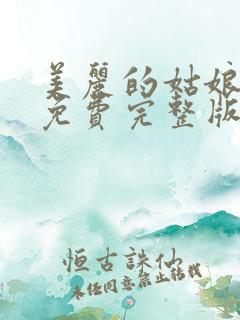 美麗的姑娘
免費完整版
恒古誅仙
未经同意禁止转载